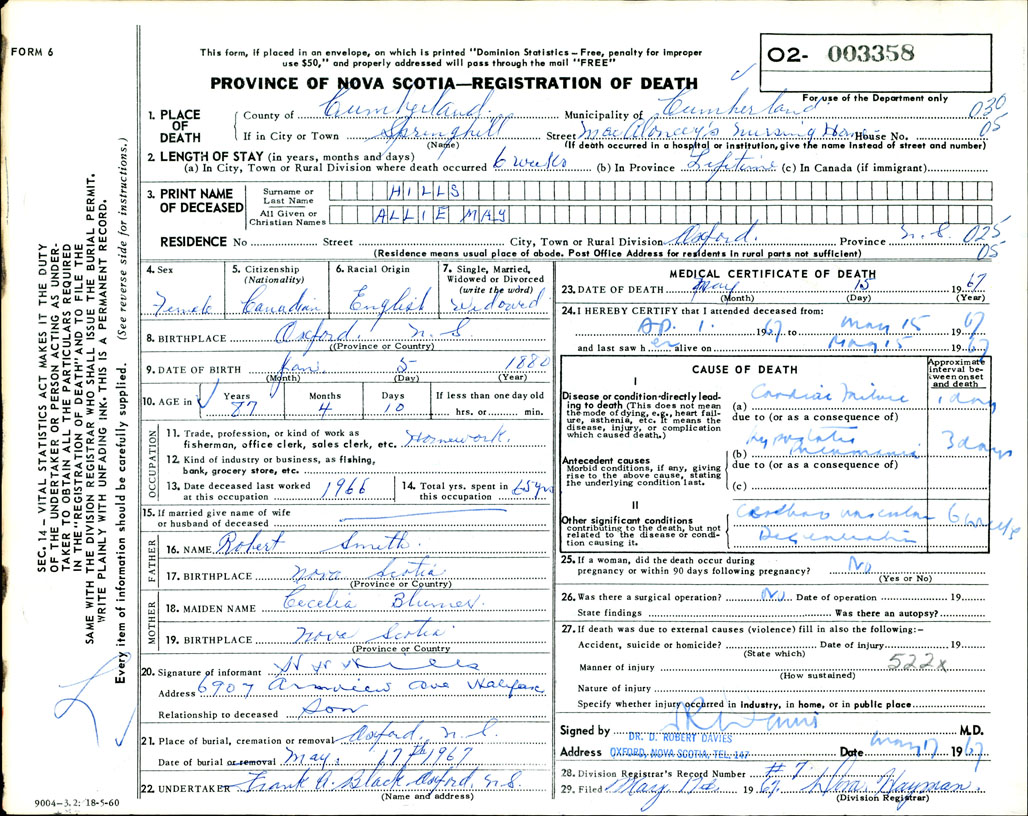 FORM 6
This form, if placed in an envelope, on which is printed "Dominion Statistics – Free, penalty for improper
use $50," and properly addressed will pass through the mail "FREE"
PROVINCE OF NOVA SCOTIA—REGISTRATION OF DEATH
O2- 003358
For use of the Department only
1. PLACE OF DEATH
County of Cumberland. Municipality of Cumberland 030
If in City or Town Springhill Street Nursing Home House No. 05
(Name) (If death occurred in a hospital or institution, give the name instead of street and number)
2. LENGTH OF STAY (in years, months and days)
(a) In City, Town or Rural Division where death occurred 6 weeks (b) In Province Lifetime (c) In Canada (if immigrant)
3. PRINT NAME OF DECEASED
Surname or Last Name HILLS
All Given or Christian Names ALLIE MAY
RESIDENCE No Street City, Town or Rural Division Oxford. Province N.S. 025
05
(Residence means usual place of abode. Post Office Address for residents in rural parts not sufficient)
4. Sex Female
5. Citizenship (Nationality) Canadian
6. Racial Origin English
7. Single, Married, Widowed or Divorced (write the word) Widowed
8. BIRTHPLACE Oxford. N.S
(Province or Country)
9. DATE OF BIRTH Jan. 5 1880
(Month) (Day) (Year)
10. AGE in Years 87 Months 4 Days 10 If less than one day old hrs. or min.
OCCUPATION
11. Trade, profession, or kind of work as
fisherman, office clerk, sales clerk, etc. Homework.
12. Kind of industry or business, as fishing,
bank, grocery store, etc.
13. Date deceased last worked at this occupation 1966
14. Total yrs. spent in this occupation 65 yrs
15. If married give name of wife
or husband of deceased
FATHER
16. NAME Robert Smith.
17. BIRTHPLACE Nova Scotia
(Province or Country)
MOTHER
18. MAIDEN NAME Cecelia
19. BIRTHPLACE Nova Scotia
(Province or Country)
20. Signature of informant
Address 6907 Armview Ave Halifax
Relationship to deceased Son
21. Place of burial, cremation or removal Oxford. N.S.
Date of burial or removal May. 17th 1967
22. UNDERTAKER Frank A. Black. Oxford, N.S.
(Name and address)
9004–3.2: 18-5-60
MEDICAL CERTIFICATE OF DEATH
23. DATE OF DEATH May 15 1967
(Month) (Day) (Year)
24. I HEREBY CERTIFY that I attended deceased from:
Ap. 1. 1967 to May 15 1967
and last saw her alive on May 15 1967
CAUSE OF DEATH
Approximate interval between onset and death
I
Disease or condition directly leading to death (This does not mean
the mode of dying, e.g., heart failure, asthenia, etc. It means the
disease, injury, or complication
which caused death.)
(a) Cardiac failure 1 day
due to (or as a consequence of)
(b) hypostatic pneumonia 3 days
Antecedent causes
Morbid conditions, if any, giving
rise to the above cause, stating
the underlying condition last.
due to (or as a consequence of)
(c)
II
Other significant conditions
contributing to the death, but not
related to the disease or condition causing it.
Cerebro vascular 6 weeks
Degeneration
25. If a woman, did the death occur during
pregnancy or within 90 days following pregnancy? No
(Yes or No)
26. Was there a surgical operation? No. Date of operation 19
State findings Was there an autopsy?
27. If death was due to external causes (violence) fill in also the following:–
Accident, suicide or homicide? Date of injury 19
(State which)
Manner of injury 522x
(How sustained)
Nature of injury
Specify whether injury occurred in industry, in home, or in public place
Signed by M.D.
DR. D. ROBERT DAVIES
Address OXFORD, NOVA SCOTIA, TEL. 147 Date May 17 1967
28. Division Registrar's Record Number # 7.
29. Filed 1967. Hayman.
(Division Registrar)
SEC. 14 – VITAL STATISTICS ACT MAKES IT THE DUTY
OF THE UNDERTAKER OR PERSON ACTING AS UNDER-
TAKER TO OBTAIN ALL THE PARTICULARS REQUIRED
IN THE "REGISTRATION OF DEATH" AND TO FILE THE
SAME WITH THE DIVISION REGISTRAR WHO SHALL ISSUE THE BURIAL PERMIT.
WRITE PLAINLY WITH UNFADING INK. THIS IS A PERMANENT RECORD.
Every item of information should be carefully supplied. (See reverse side for instructions.)